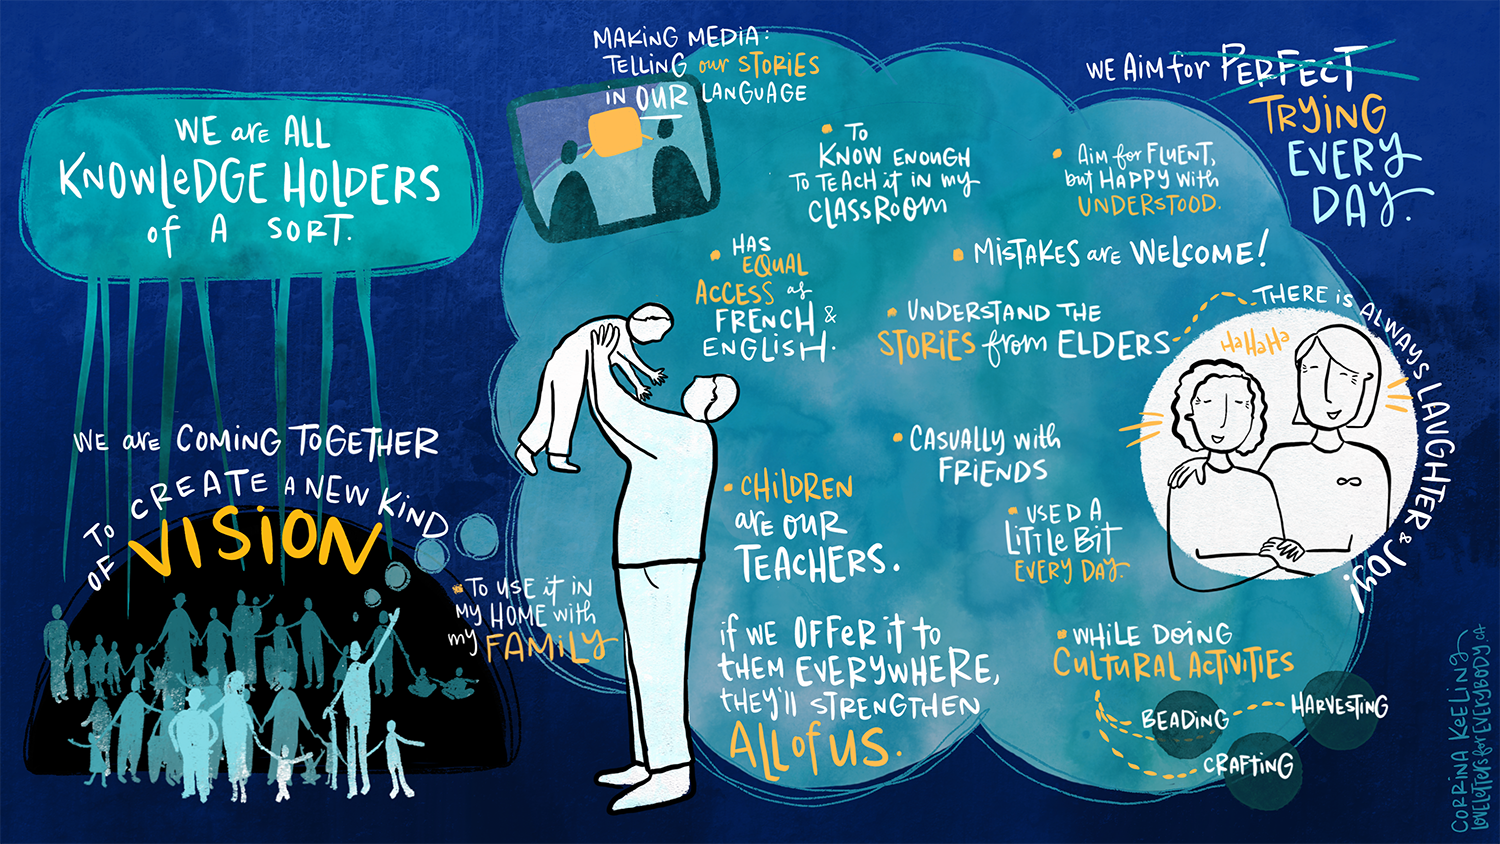 WE are ALL
KNOWLEDGE HOLDERS
of A SORT.
WE are COMING TOGETHER
TO CREATE A NEW KIND
OF VISION
• TO USE it IN
MY HOME with
my FAMILY
MAKING MEDIA:
TELLING our STORIES
in OUR LANGUAGE
• TO
KNOW ENOUGH
TO TEACH it IN my
CLASSROOM
• HAS
EQUAL
ACCESS as
FRENCH &
ENGLISH.
• AIM for FLUENT,
but HAPPY with
UNDERSTOOD.
WE AIM for PERFECT
TRYING
EVERY
DAY.
• MISTAKES are WELCOME!
• UNDERSTAND THE
STORIES from ELDERS
THERE is ALWAYS LAUGHTER & JOY!
HaHaHa
• CASUALLY with
FRIENDS
• CHILDREN
are OUR
TEACHERS.
if WE OFFER it TO
them EVERYWHERE,
they'll STRENGTHEN
ALL of US.
• USED A
LITTLE BIT
EVERY DAY.
• WHILE DOING
CULTURAL ACTIVITIES
BEADING
HARVESTING
CRAFTING
CORRINA KEELING
LOVELETTERS for EVERYBODY.CA